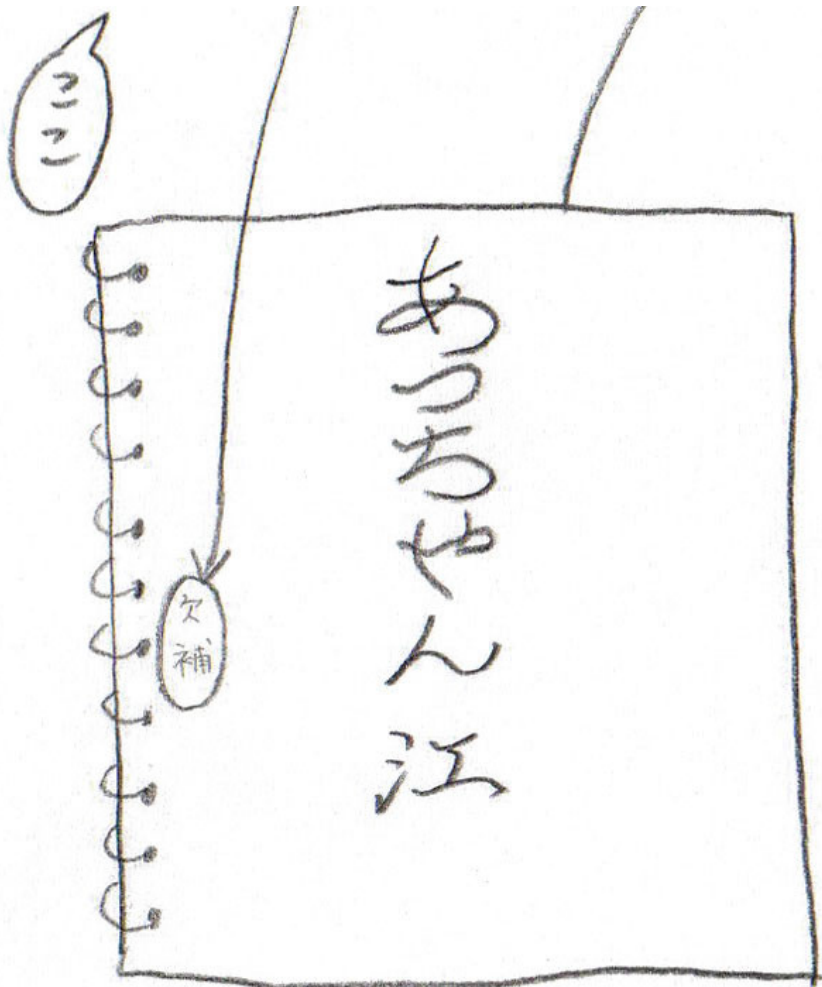 ここ
あっちゃん江
欠補